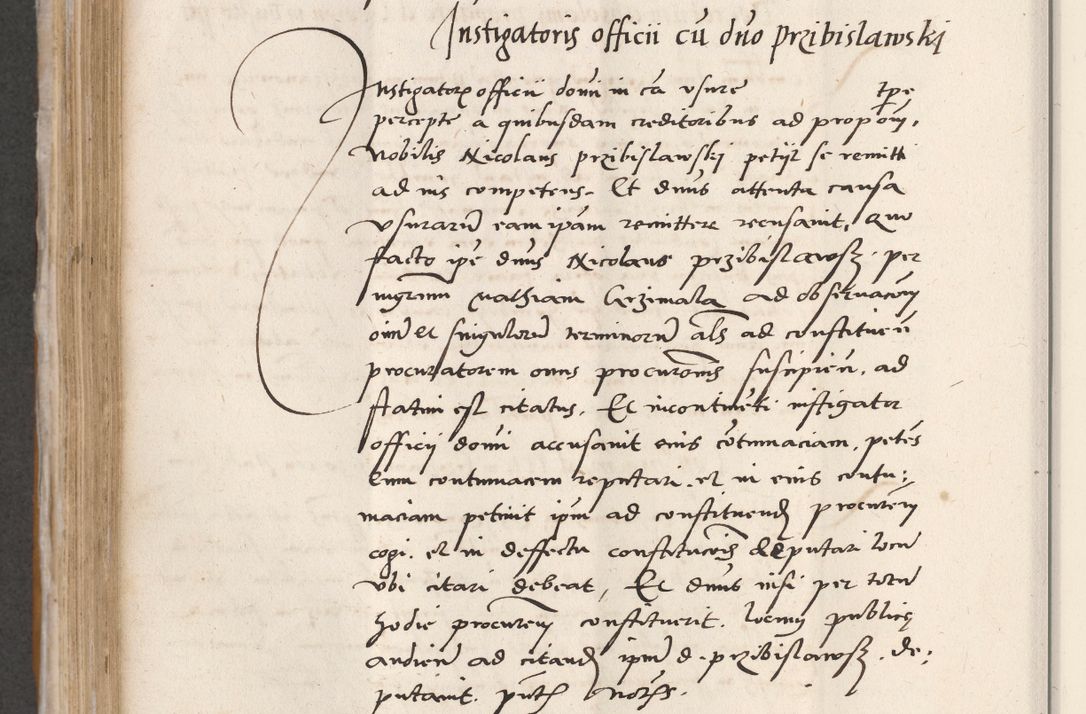 Instigatoris officii cu dno Przibislawski
Instigatore officii domi in ca usure tpe
percepte a quibusdam creditoribus ad propom,
Nobilis Nicolaus przibislawskj petijt se remitti
ad ius competens. Et dnus attenta causa
usurarum eam ipam remittere recusavit, Quo
facto ipe dnus Nicolaus przibislawsz. per
ingrum Mathiam Grzimala ad observacom
oim et singulorum terminorum als ad constituen
procuratorem onus procuronis suscipien. ad
statim est citatus. Et incontinenti instigator
officii domi accusavit eius cotumaciam, petens
eum contumacem reputari. et in eius contu:
maciam petivit ipm ad constituend procurem
cogi. et in deffectu constitucois deputari locu
ubi citari debeat, Et dnus nisi per totu
hodie procurem constituerit. locum publice
audien ad citand ipm d. przibislawsz. de:
putavit. pntt Nots.